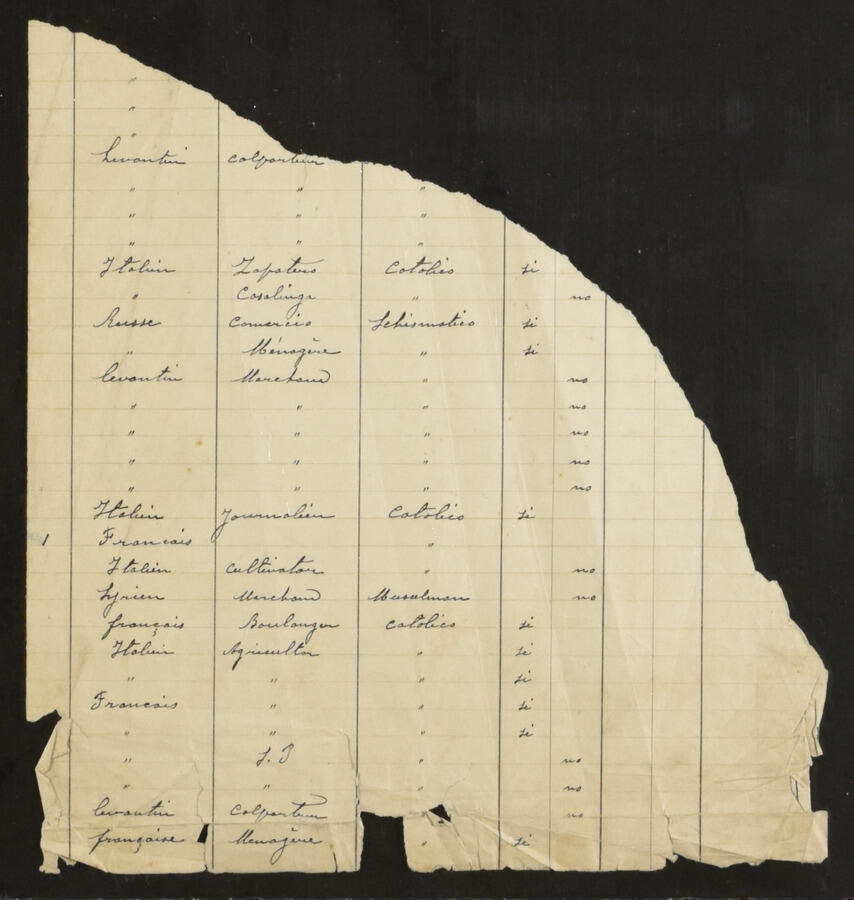 "
"
"
Levantin colporteur
" " "
" " "
" " "
Italien Zapatero Catolico si
" Casalinga " no
Russe Comercio Schismatico si
" Ménagère " si
levantin Marchand " no
" " " no
" " " no
" " " no
" " " no
Italien Journalier Catolico si
1 Francais "
Italien Cultivator " no
Syrien Marchand Musulman no
français Boulanger catolico si
Italien Agricultor " si
" " " si
Francais " " si
" " " si
" S. P " no
" " " no
levantin Colporteur no
française Menagère " si